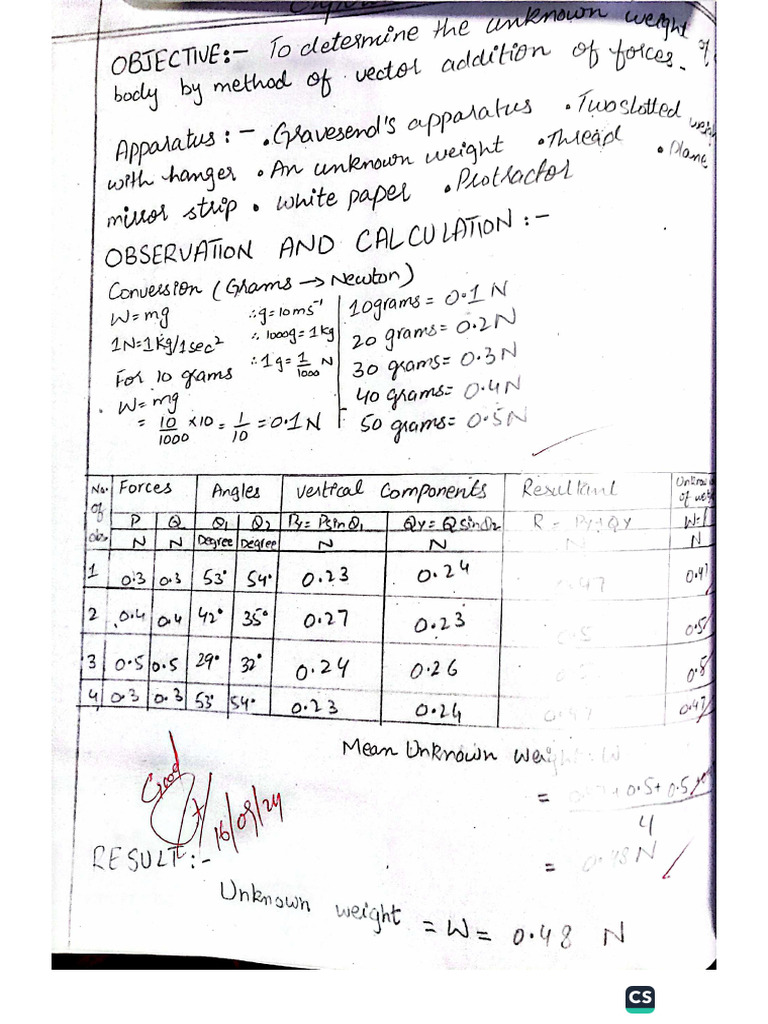 OBJECTIVE:- To determine the unknown weight of
body by method of vector addition of forces.
Apparatus:- • Gravesend's apparatus • Two slotted
with hanger • An unknown weight • Thread • Plane
mirror strip • White paper • Protractor
OBSERVATION AND CALCULATION:-
Conversion (Grams → Newton)
W=mg ∴g=10ms⁻¹
1N=1Kg/1sec² ∴1000g=1kg
For 10 grams ∴1g=1/1000 N
W=mg
= 10/1000 ×10 = 1/10 =0.1N
10grams = 0.1N
20 grams= 0.2N
30 grams= 0.3N
40 grams= 0.4N
50 grams= 0.5N
No. of obs Forces Angles Vertical Components Resultant
P Q Q1 Q2 Py=PsinQ1 Qy=QsinQ2 R = Py+Qy
N N Degree Degree N N N N
1 0.3 0.3 53° 54° 0.23 0.24 0.47 0.47
2 0.4 0.4 42° 35° 0.27 0.23 0.5 0.5
3 0.5 0.5 29° 32° 0.24 0.26 0.5 0.5
4 0.3 0.3 53° 54° 0.23 0.24 0.47 0.47
Mean Unknown weight
= +0.5+0.5
4
= 0.48N
Good
16/09/24
RESULT:-
Unknown weight = W = 0.48 N
CS